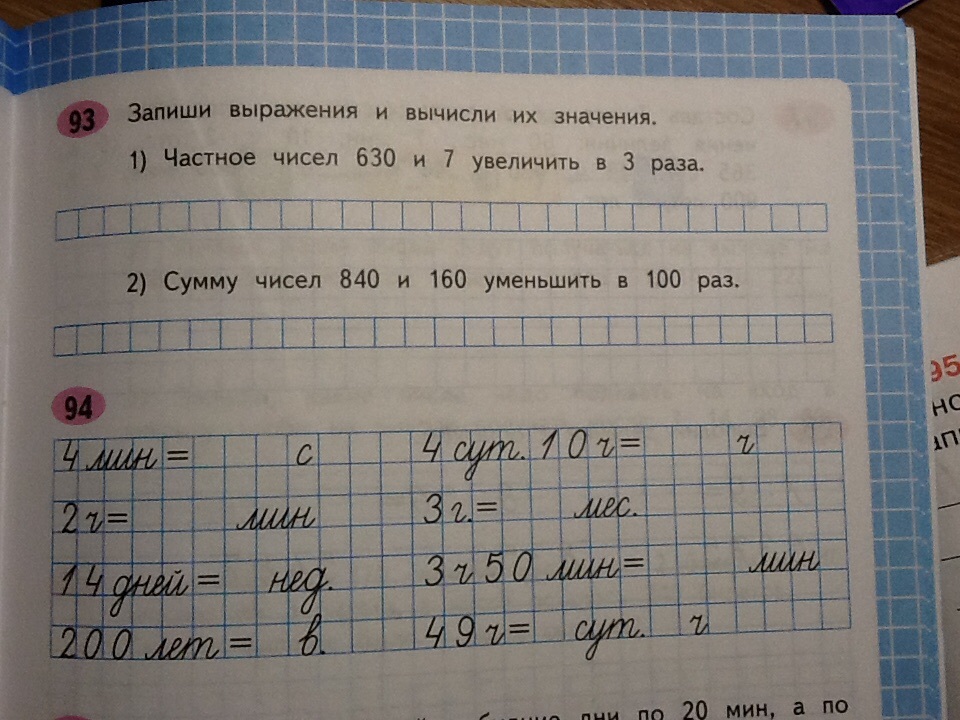 93 Запиши выражения и вычисли их значения.
1) Частное чисел 630 и 7 увеличить в 3 раза.
2) Сумму чисел 840 и 160 уменьшить в 100 раз.
94
4 мин = с 4 сут. 10 ч = ч
2 ч = мин 3 г. = мес.
14 дней = нед. 3 ч 50 мин = мин
200 лет = в. 49 ч = сут. ч
дни по 20 мин, а по
95